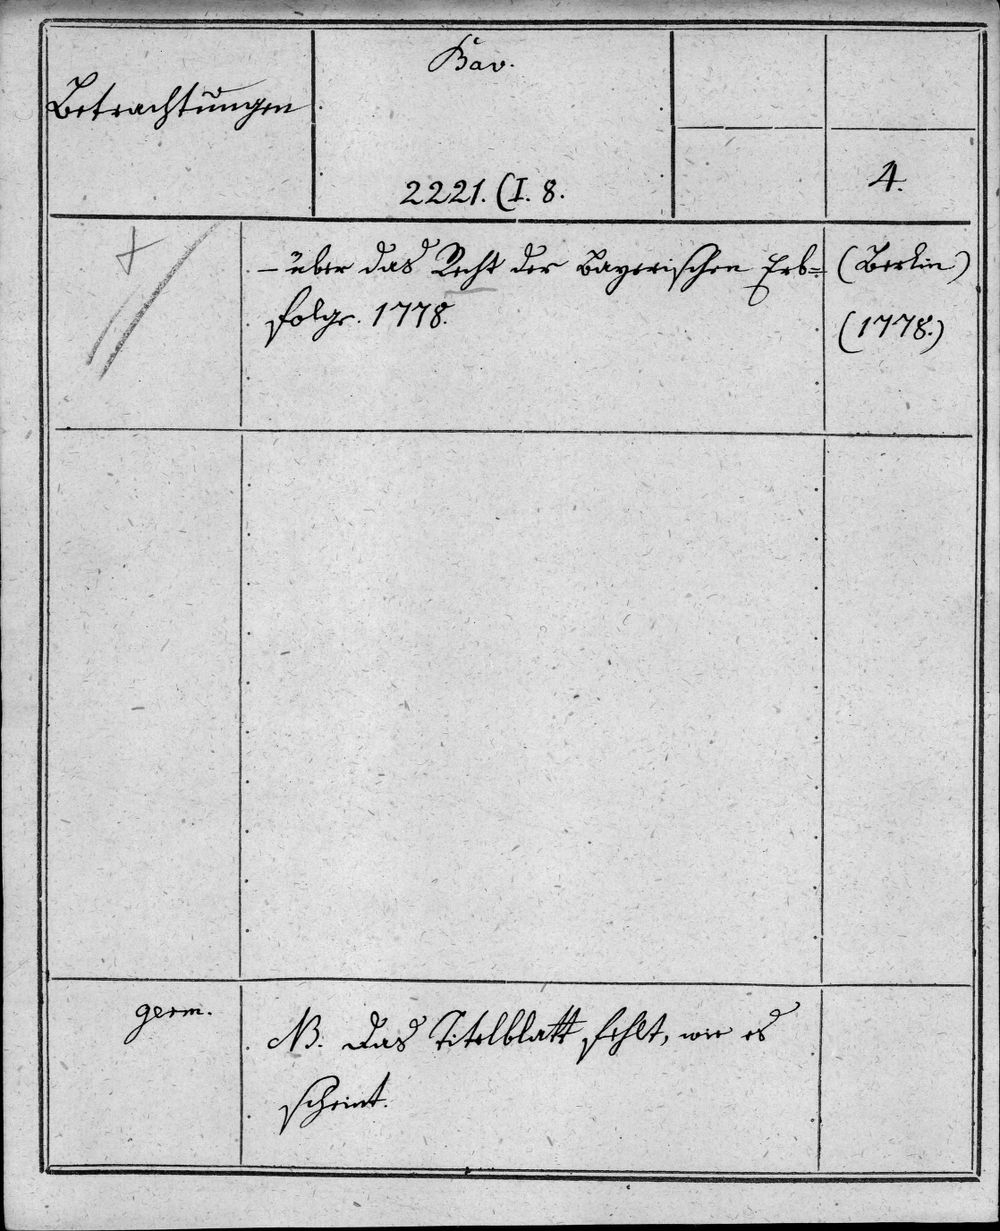 Betrachtungen
Bav.
2221. (I. 8.
4.
– über das Recht der Bayerischen Erb=
folge. 1778.
(Berlin)
(1778.)
germ.
NB. Das Titelblatt fehlt, wie es
scheint.